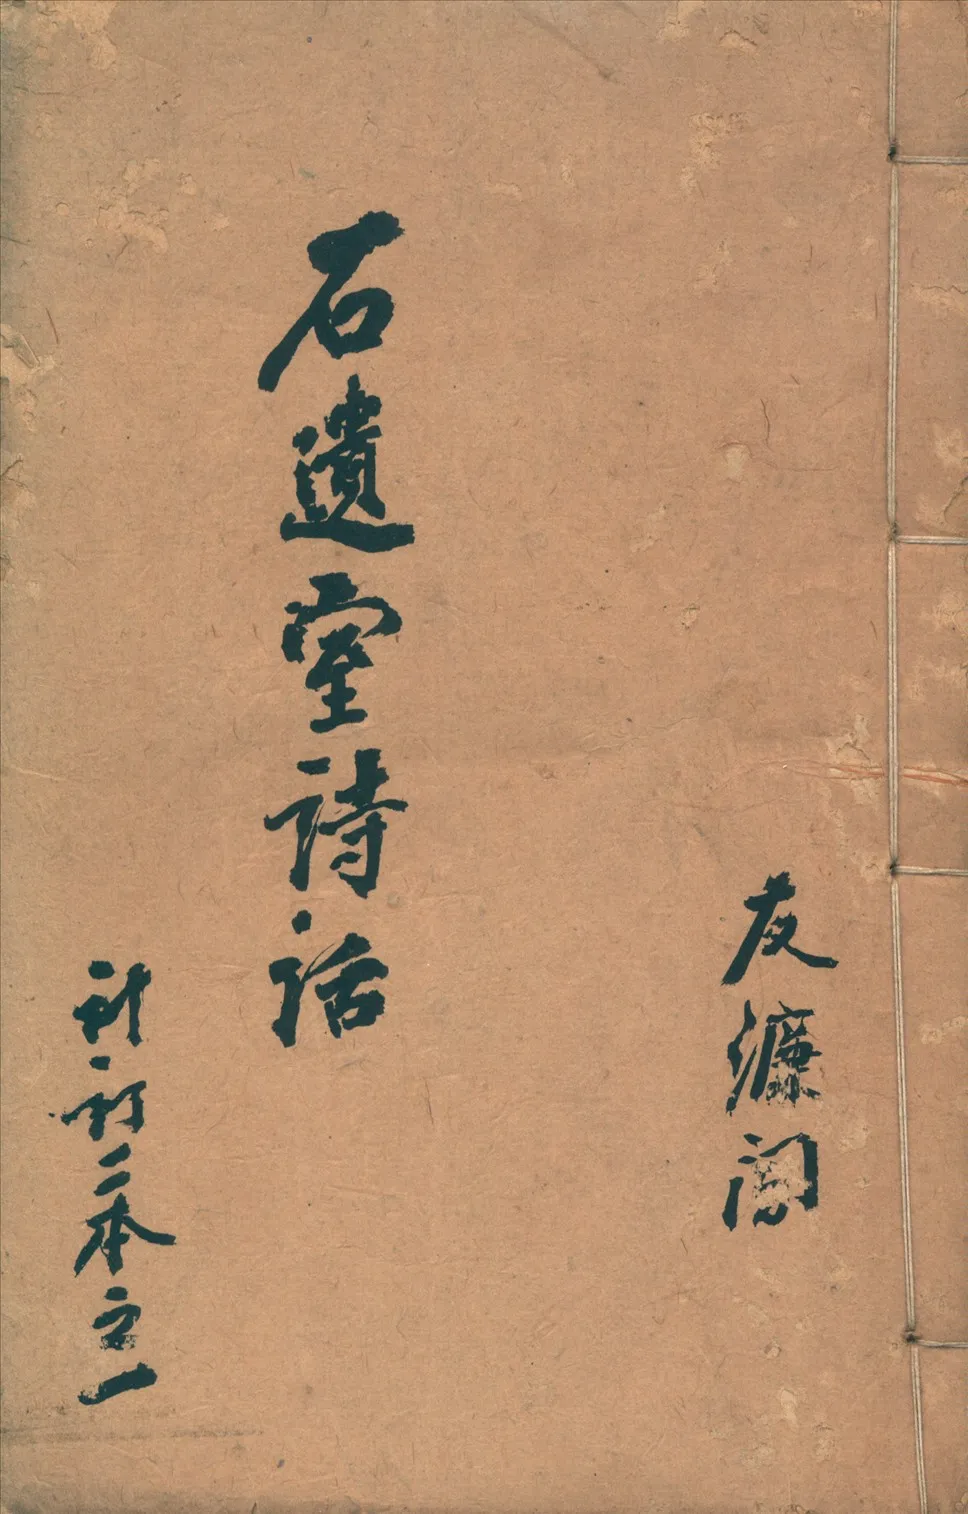 友濂
石遺室詩話
訂二本之一